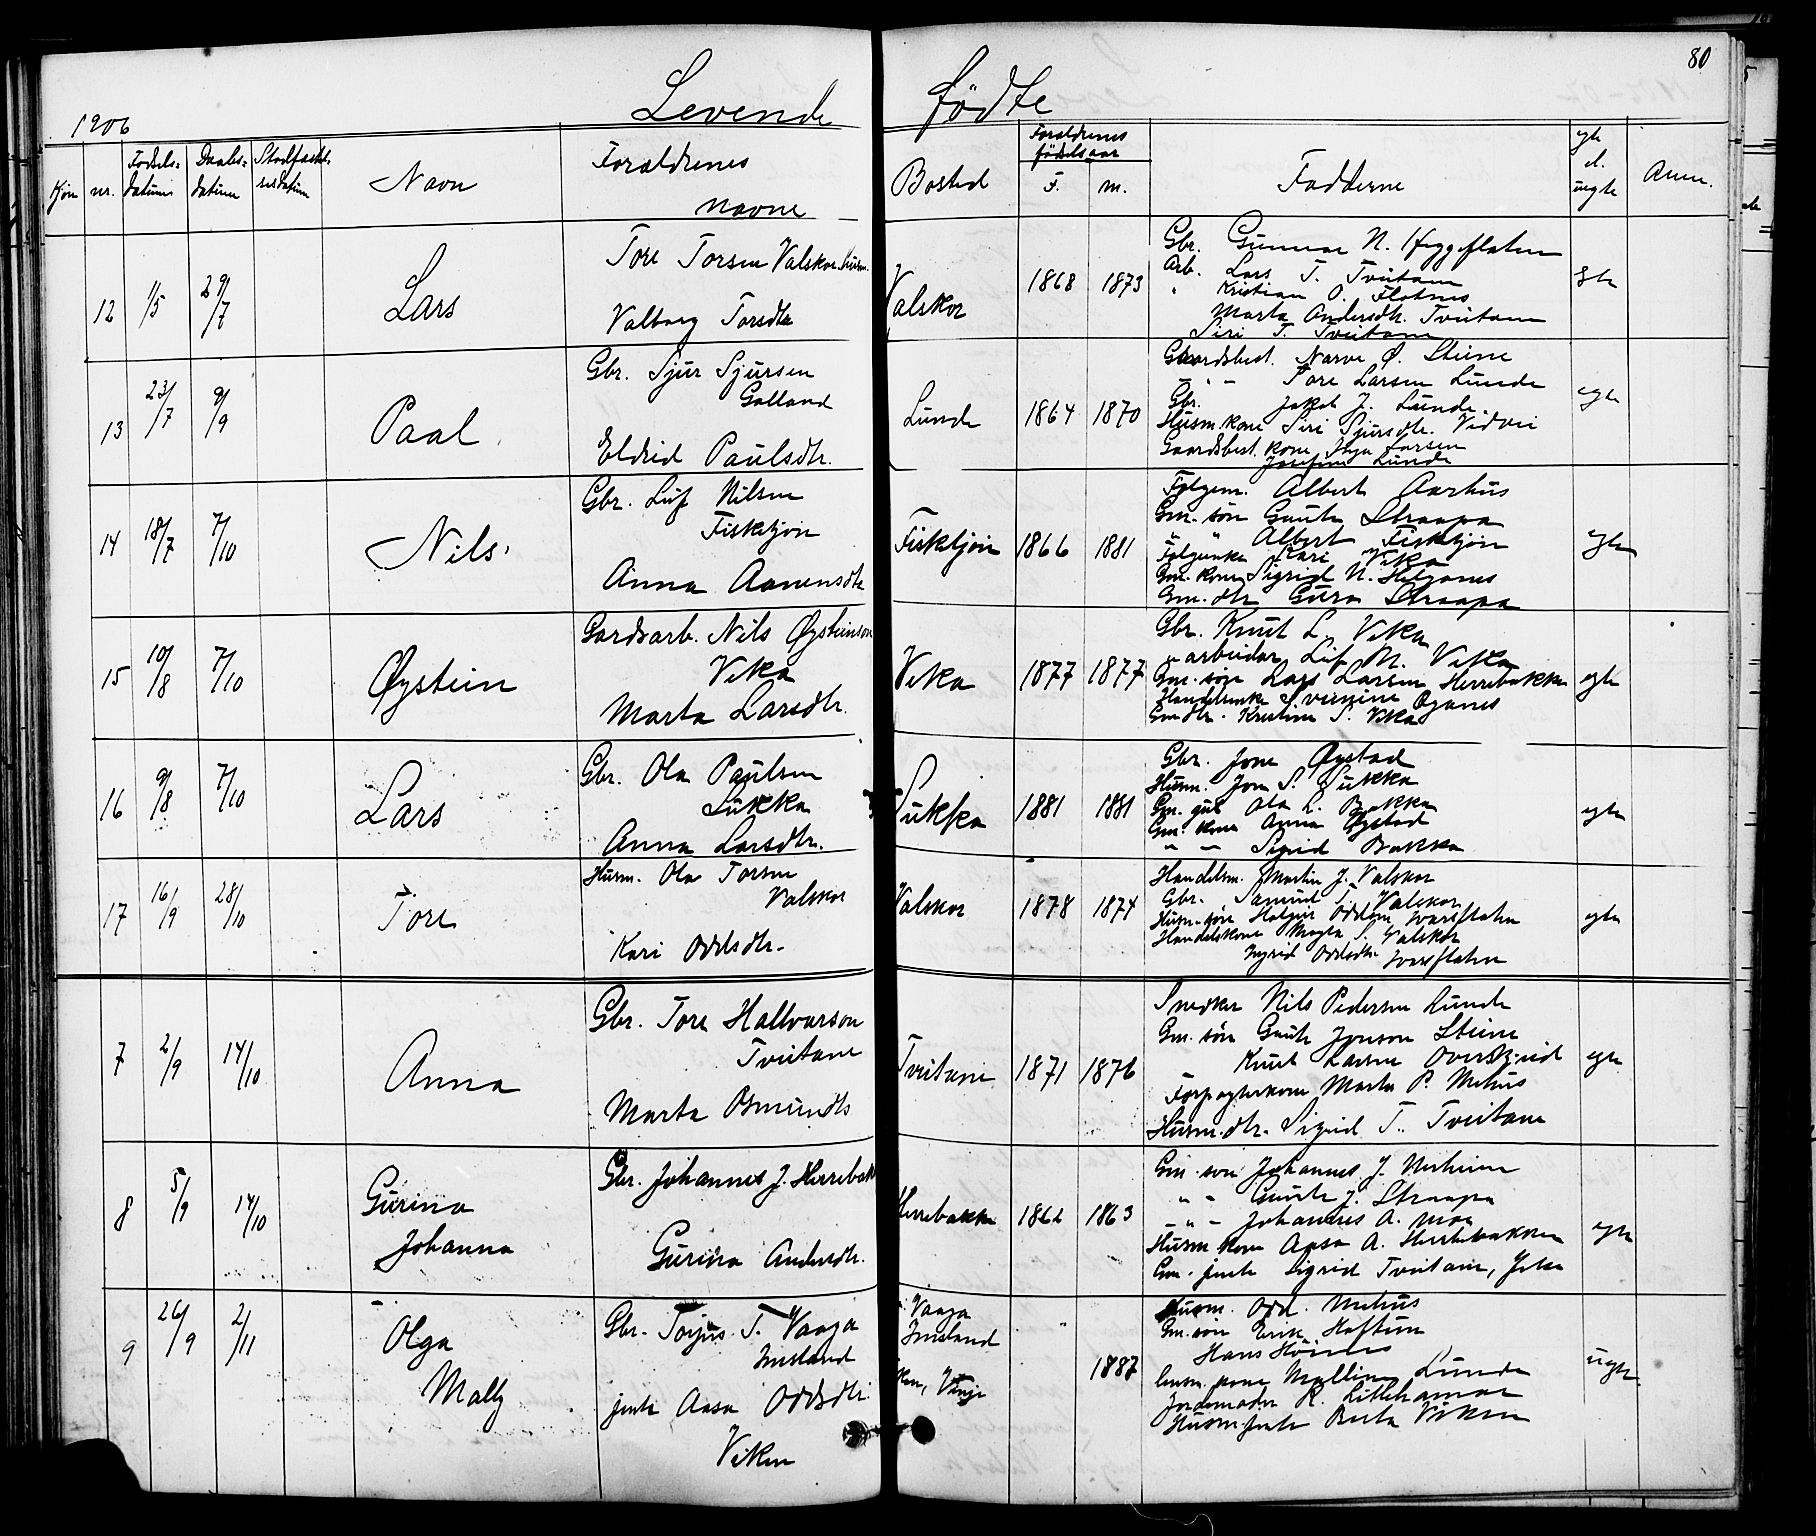 80
Levende fødte
1906
Kjøn nr. Fødsels= datum Daabs= datum Stadfæstel- sesdatum Navn Forældrenes navne Bosted Forældrenes fødselsaar F. M. Fadderne egte el. uegte Anm.
12 1/5 29/7 Lars
Tore Torsen Valskor husm.
Valborg Torsdtr
Valskor 1868 1873
Gbr. Gunnar N. Heggeflaten
Arb. Lars T. Tveitane
" Kristian O. Flatnes
Marta Andersdtr. Tveitane
Siri T. Tveitane
Egte
13 23/7 9/9 Paal
Gbr. Sjur Sjursen
Golland
Eldrid Paulsdtr.
Lunde 1864 1870
Gaardsbest. Narve Ø. Steine
- " - Tore Larsen Lunde
Gbr. Jakob J. Lunde.
Husm. kone Siri Sjursdtr. Vidvei
Gaardsbest. kone Inga Larsen
Josefine Lunde
egte
14 18/7 7/10 Nils
Gbr. Leif Nilsen
Fisketjøn
Anna Aanensdtr
Fisketjøn 1866 1881
Følgem. Albert Aarhus
Gm. søn Gaute Straapa
" " Albert Fisketjøn
Følgeenke Kari Vika
Gm. kone Sigrid N. Helganes
Gm. dtr Guro Straapa
egte
15 10/8 7/10 Øystein
Gardsarb. Nils Øysteinson
Vika
Marta Larsdtr.
Vika 1877 1877
Gbr. Knut L. Vika
" arbeider Leif M. Vika
Gm. søn Lars Larsen Herrebakken
Handelsenke Severine Oganes
Gm dtr. Kristine S. Vika
egte
16 9/8 7/10 Lars
Gbr. Ola Paulsen
Sukka
Anna Larsdtr.
Sukka 1881 1881
Gbr. Jone Øystad
Husm. Jon S. Sukka
Gm. gut Ola L. Bakka
Gm. kone Anna Øystad
" " Sigrid Bakka
egte
17 16/9 28/10 Tore
Husm. Ola Torsen
Valskor
Kari Oddsdtr.
Valskor 1878 1874
Handelsm. Martin J. Valskor
Gbr. Samuel T. Valskor
Husm. søn Halgeir Oddsen Ivarsflaten
Handelskone Magla S. Valskor
Ingrid Oddsdtr Ivarsflaten
egte
7 2/9 14/10 Anna
Gbr. Tore Hallvarson
Tveitane
Marta Osmundts
Tveitane 1871 1876
Snedker Nils Pedersen Lunde
Gm. søn Gaute Jonson Steine
Knut Larsen Overskeid
Forpagterkone Marta P. Mehus
Husm. dtr. Sigrid T. Tveitane
egte
8 5/9 14/10 Gurina
Johanna
Gbr. Johannes J. Herrebak
Gurina Andersdtr.
Herrebakke 1862 1863
Gm. søn Johannes J. Nerheim
" - Gaute J. Straapa
- " - Johannes A. Moe
Husm kone Aasa A. Herrebakken
Gm. jente Sigrid Tveitane,
egte
9 26/9 2/11 Olga
Mally
Gbr. Torjus T. Vaaga
Imsland
jente Aasa Oddsdtr
Viken
Vaaga
Imsland
1887
Husm. Odd. Mehus
Gm. søn Erik Haftun
Hans
kone Malline Lunde
Jordemoder R. Lillehamar
Husm. jente Berta Viken
uegte